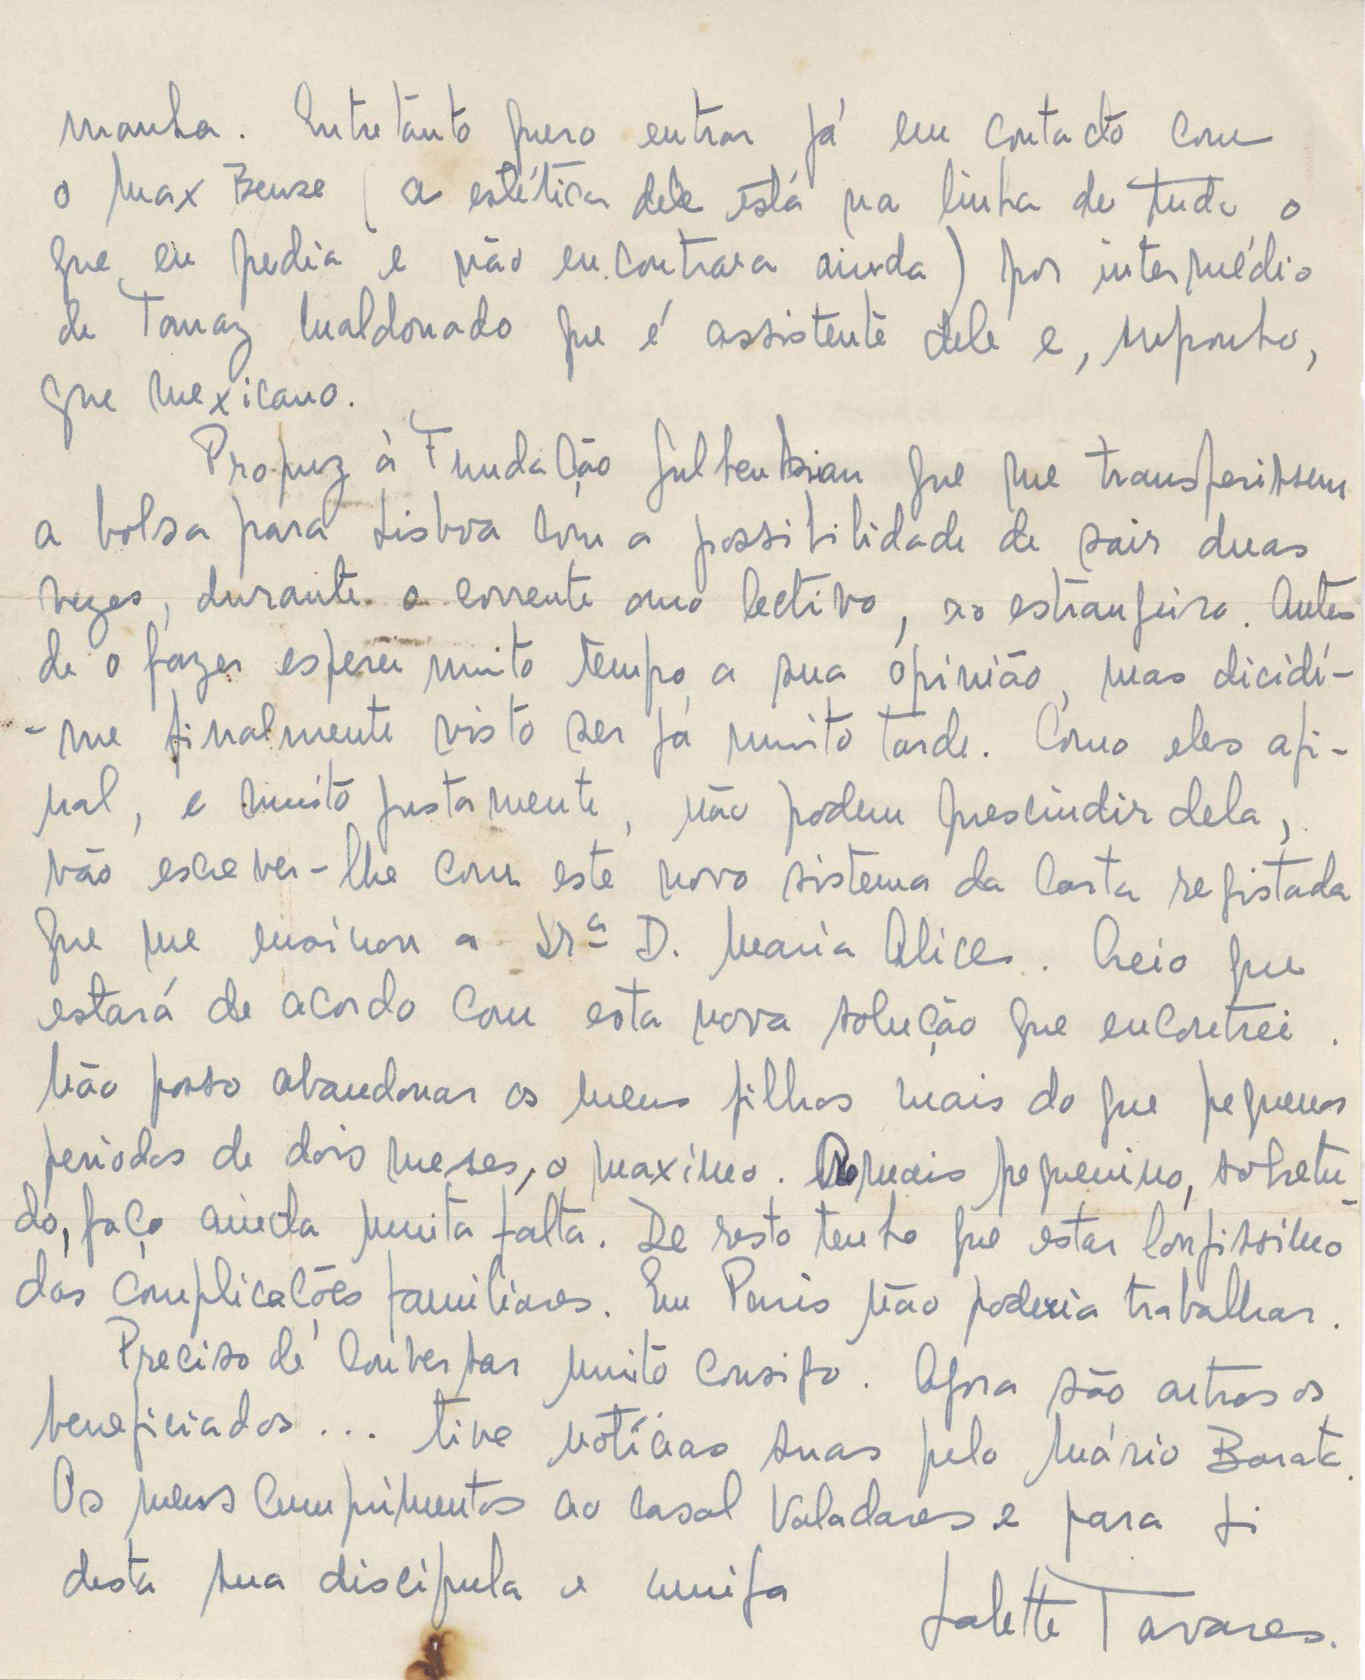 manha. Entretanto quero entrar já em contacto com
o Max Bense (a estética dele está na linha de tudo o
que eu pedia e não encontrara ainda) por intermédio
de Tomaz Maldonado que é assistente dele e, suponho,
que mexicano.
Propuz à Fundação Gulbenkian que me transferissem
a bolsa para Lisboa com a possibilidade de sair duas
vezes, durante o corrente ano lectivo, ao estrangeiro. Antes
de o fazer esperei muito tempo a sua opinião, mas dicidi-
-me finalmente visto ser já muito tarde. Como eles afi-
nal, e muito justamente, não podem prescindir dela,
vão escrever-lhe com este novo sistema da carta registada
que me ensinou a Srª D. Maria Alice. Creio que
estará de acordo com esta nova solução que encontrei.
Não posso abandonar os meus filhos mais do que pequenos
periodos de dois meses, o maxímo. Ao mais pequenino, sobretu
do, faço ainda muita falta. De resto tenho que estar longissimo
das complicações familiares. Em Paris não poderia trabalhar.
Preciso de conversar muito consigo. Agora são outros os
beneficiados... tive notícias suas pelo Mário Barata.
Os meus cumprimentos ao casal Valadares e para si
desta sua discípula e amiga
Salette Tavares.